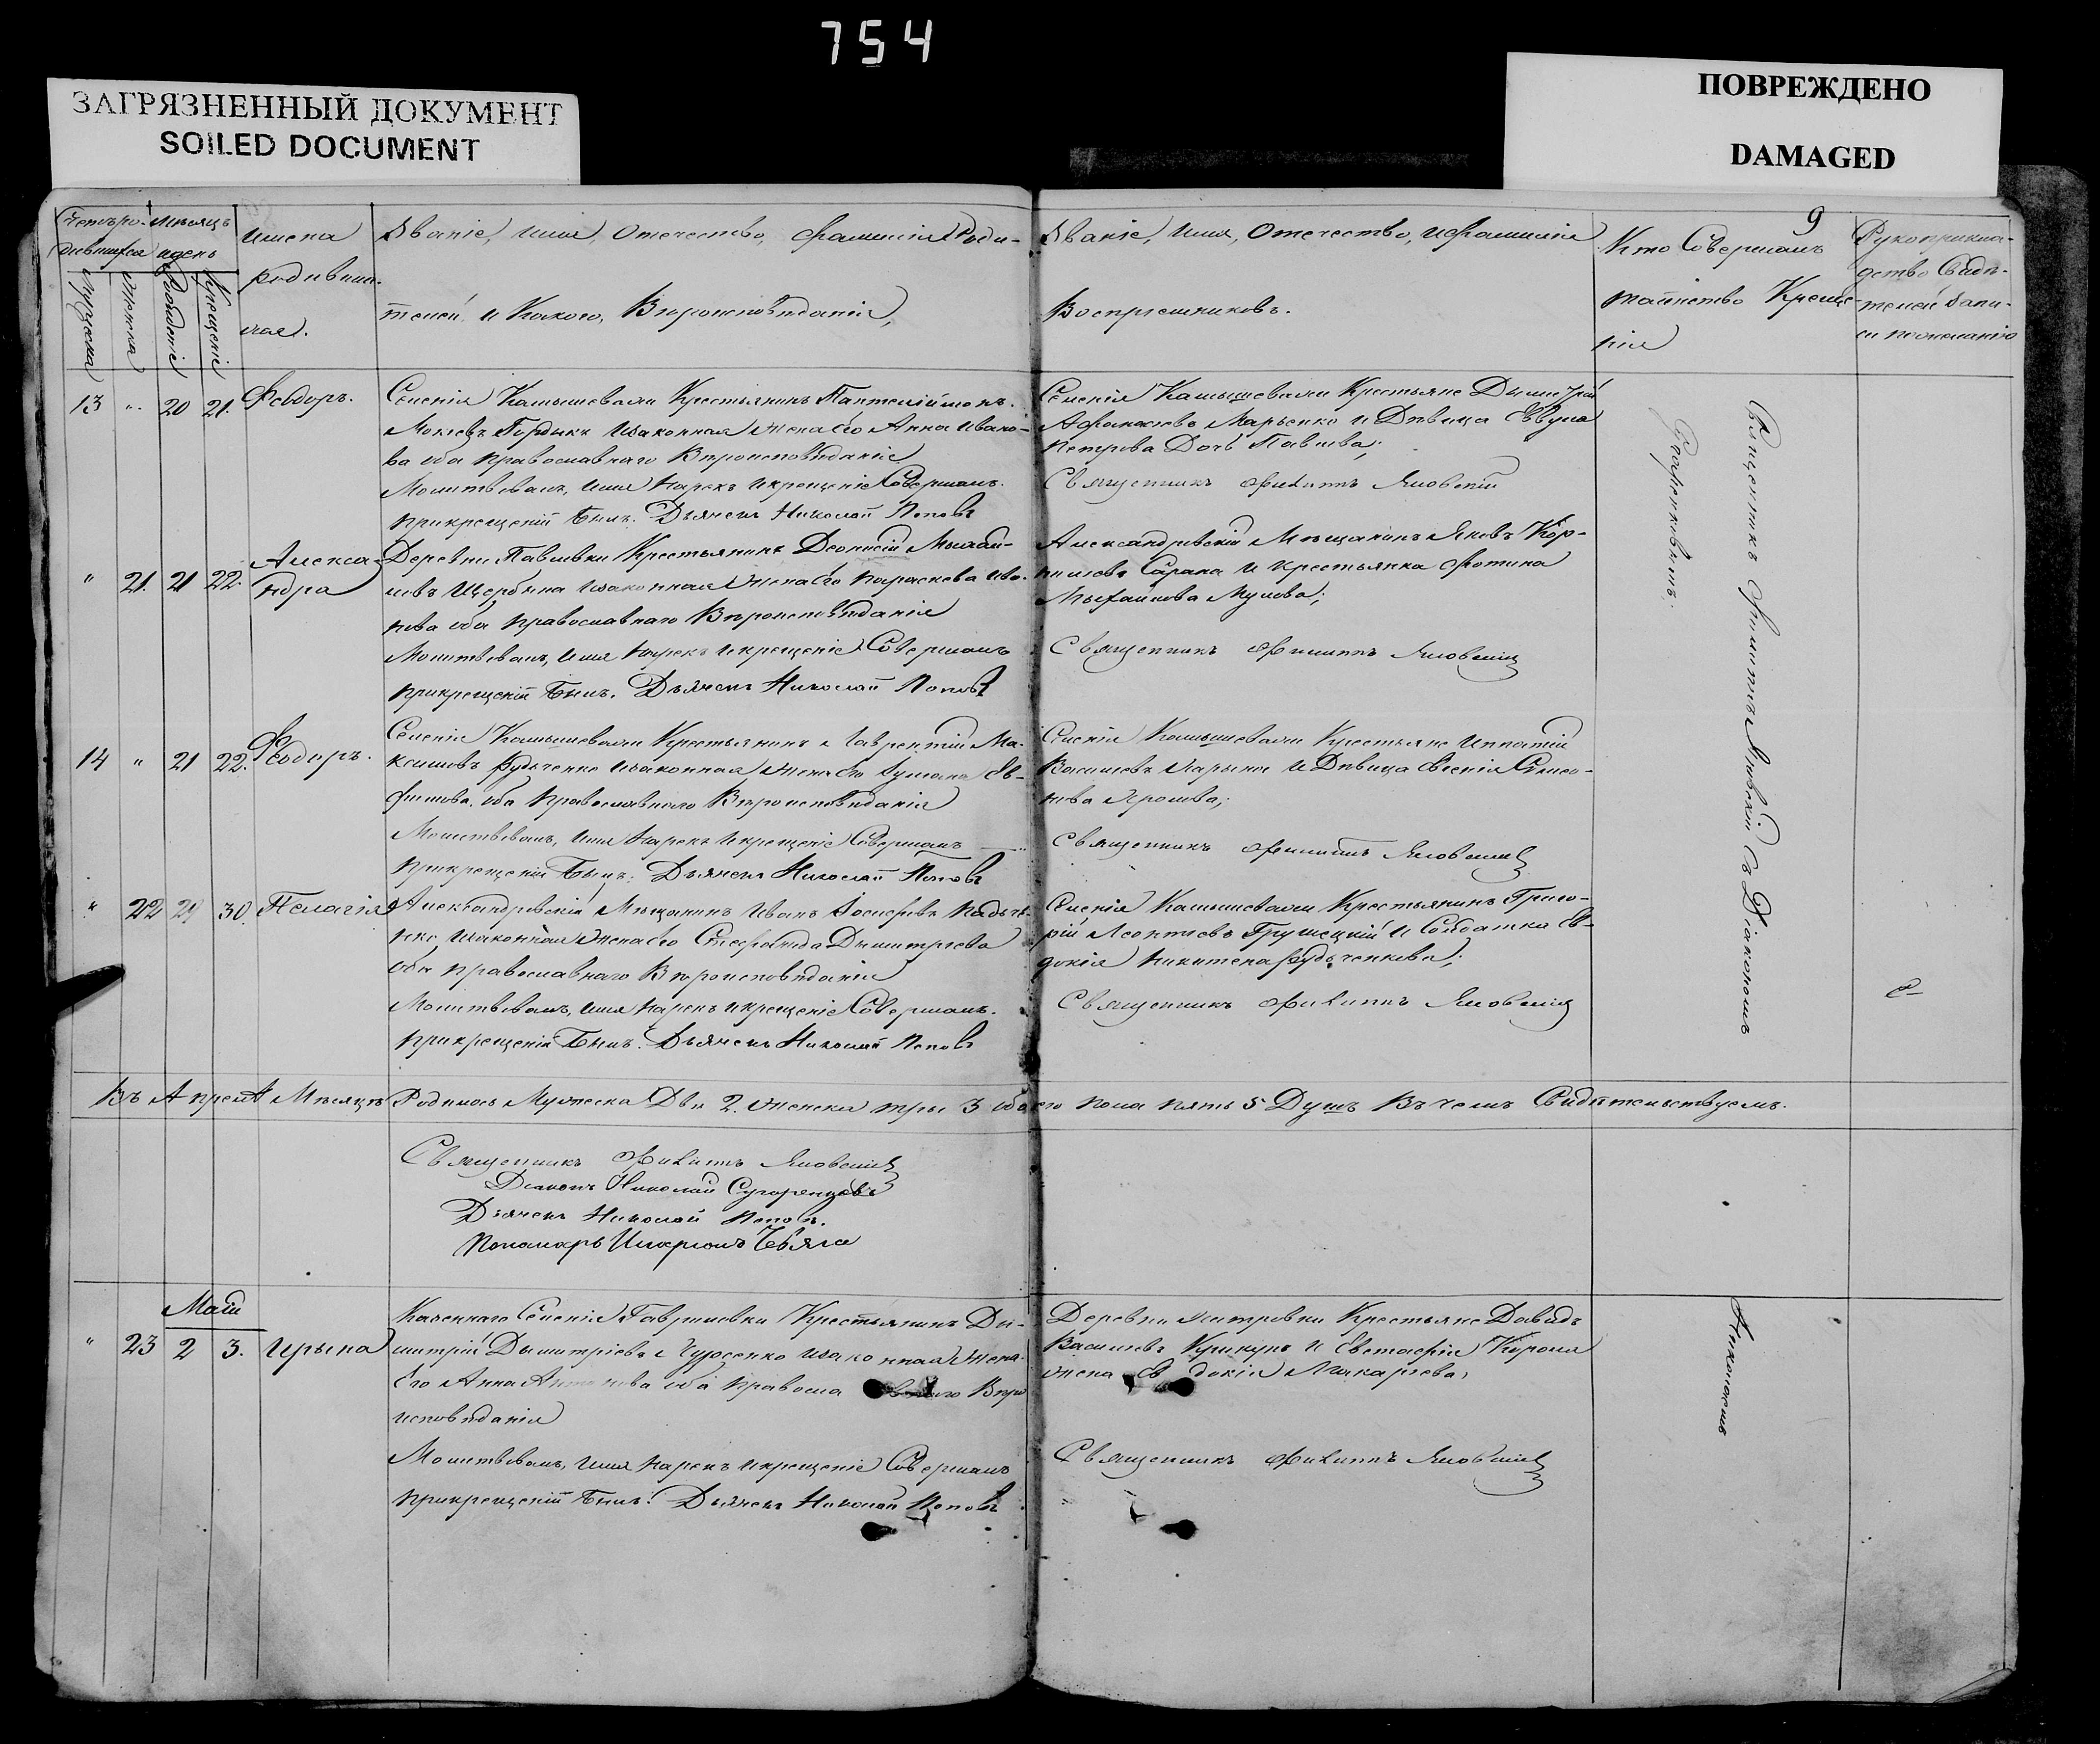 754
ЗАГРЯЗНЕННЫЙ ДОКУМЕНТ
SOILED DOCUMENT
ПОВРЕЖДЕНО
DAMAGED
9
Счетъ ро- Мѣсяцъ
дившихся и день
Мужеска
Женска
Рождение
Крещение
Имена
родивших-
ся.
Званіе, Имя, Отечество, Фамилія Роди-
телей и Какого, Вѣроисповѣданія,
Званіе, Имя, Отечество, и Фамилия
Воспріемниковъ.
Кто Совершалъ
таинство Креще-
нія
Рукоприкла-
дство Свидѣ-
телей запи-
си по желанію
13 " 20 21. Феодоръ.
Селенія Камышевахи Крестьянинъ Пантелiймонъ
Мокiевъ Гордыкъ и законная Жена Его Анна Ивано-
ва оба православнаго Вѣроисповѣданія
Молитвовалъ, Имя Нарекъ и крещеніе Совершалъ.
при крещеніи Былъ. Дьячекъ Николай Поповъ
Селенія Камышевахи Крестьяне Дымытрій
Афанасіевъ Марченко и Дѣвица Евва
Петрова Дочь Павлова;
Священникъ Филиппъ Яновскій
" 21. 21 22. Алекса-
ндра
Деревни Павловки Крестьянинъ Деонисій Михай-
ловъ Щербына и законная Жена Его Параскева Ива-
нова оба православнаго Вѣроисповѣданія
Молитвовалъ, Имя Нарекъ и крещеніе Совершалъ
при крещеніи Былъ. Дьячекъ Николай Поповъ
Александровскій Мѣщанинъ Яковъ Кор-
ниліевъ Сарана и крестьянка Фотина
Михайлова
Священникъ Филиппъ Яновскій
14 " 21 22. Феодоръ.
Селенія Камышевахи Крестьянинъ Лаврентій Ма-
ксимовъ Рудченко и законная Жена Его Ев-
фимова оба православнаго Вѣроисповѣданія
Молитвовалъ, Имя Нарекъ и крещеніе Совершалъ
при крещеніи Былъ. Дьячекъ Николай Поповъ
Селенія Камышевахи Крестьяне Ипатій
Васильевъ и Дѣвица Евгенія
Священникъ Филиппъ Яновскій
" 22 29 30. Пелагія
Александровскій Мѣщанинъ Иванъ Іосифовъ
нко, и законная Жена Его Стефанида Дымитріева
оба православнаго Вѣроисповѣданія
Молитвовалъ, Имя Нарекъ и крещеніе Совершалъ.
при крещеніи Былъ. Дьячекъ Николай Поповъ
Селенія Камышевахи Крестьянинъ Григо-
рій Леонтіевъ Грушецкій и Солдатка Ев-
докія Никитина Рудченкова;
Священникъ Филиппъ Яновскій
Священникъ Филиппъ Яновскій съ Діакономъ
Въ Апрелѣ Мѣсяцѣ Родилось Мужеска Два 2. Женска три 3 обаего пола пять 5 Душъ Въ чемъ Свидѣтельствуемъ.
Священникъ Филиппъ Яновскій
Діаконъ Николай
Дьячекъ Николай Поповъ.
Пономарь Иларіонъ
Маій
" 23 2 3. Ирына
Казеннаго Селенія Гавриловки Крестьянинъ Ди-
митрій Дымитріевъ и законная Жена
Его Анна Антонова оба православнаго Вѣро
исповѣданія
Молитвовалъ, Имя Нарекъ и крещеніе Совершалъ
при крещеніи Былъ. Дьячекъ Николай Поповъ
Деревни Петровки Крестьяне Давидъ
Васильевъ и Евстафія Короля
жена Евдокія Макаріева,
Священникъ Филиппъ Яновскій